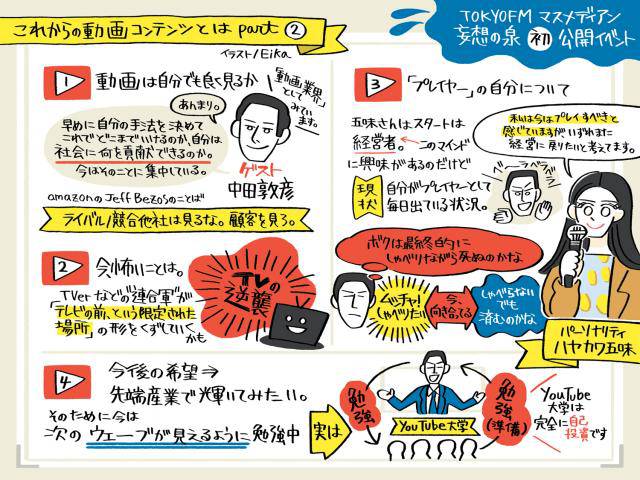 これからの動画コンテンツとは part ②
イラスト/Eika
TOKYOFM マスメディアン
妄想の泉 初 公開イベント
1 動画は自分でも良く見るか
「動画業界」
として
みてい
ます。
あんまり。
早めに自分の手法を決めて
これでどこまでいけるのか、自分は
社会に何を貢献できるのか。
今はそのことに集中している。
ゲスト
中田敦彦
amazonのJeff Bezosのことば
ライバル/競合他社は見るな。顧客を見ろ。
2 今怖いことは。
TVerなどの“連合軍”が
「テレビの前、という限定された
場所」の形をくずしていく
かも
TVの
逆襲
3 「プレイヤー」の自分について
五味さんは、スタートは
経営者。←このマインド
に興味があるのだけど
現状
自分がプレイヤーとして
毎日出ている状況。
私は今はプレイすべきと
感じていますが、いずれまた
経営に戻りたいと考えてます。
ベラベラベラ
ボクは最終的に
しゃべりながら死ぬのかな
ムッチャ!
しゃべりたい
今、
向き合ってる
しゃべらない
でも
済むのかな
パーソナリティ
ハヤカワ五味
4 今後の希望⇒
先端産業で輝いてみたい。
そのために今は
次のウェーブが見えるように勉強中
実は
勉強
YouTube大学
勉強
(準備)
YouTube
大学は
完全に自己
投資です